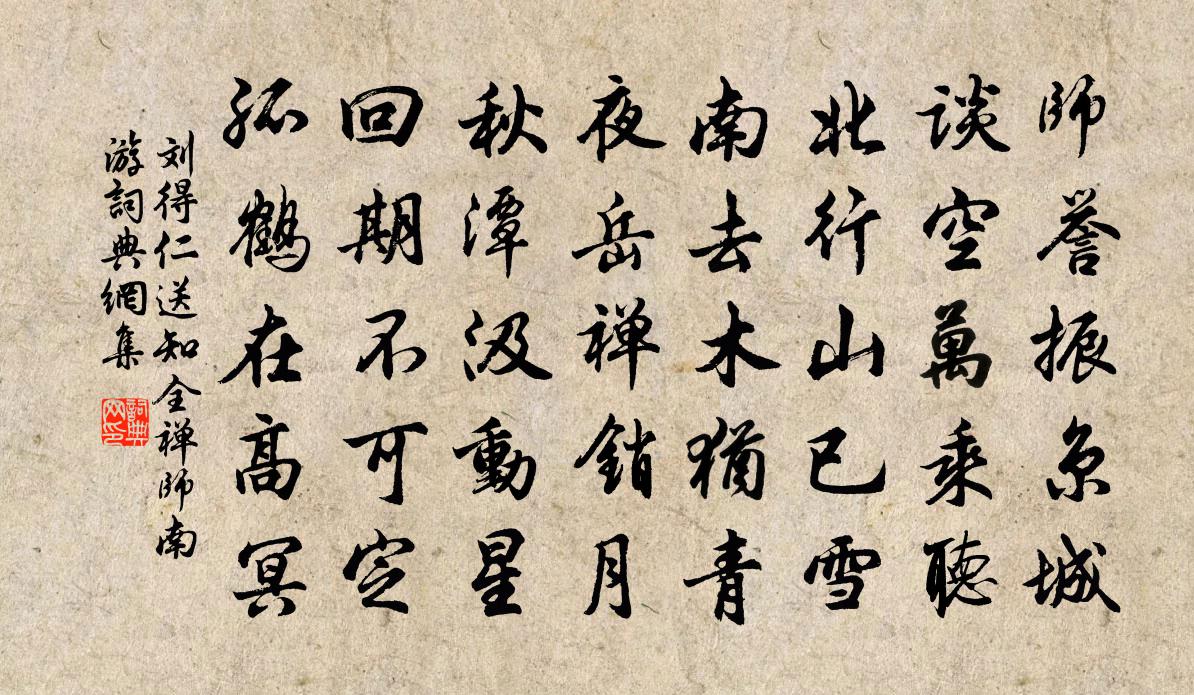 師誉振京城
談空萬乘聽
北行山已雪
南去木猶青
夜岳禅銷月
秋潭汲動星
回期不可定
孤鶴在高冥
刘得仁送知全禅師南
游詞典網集
詞典
网印